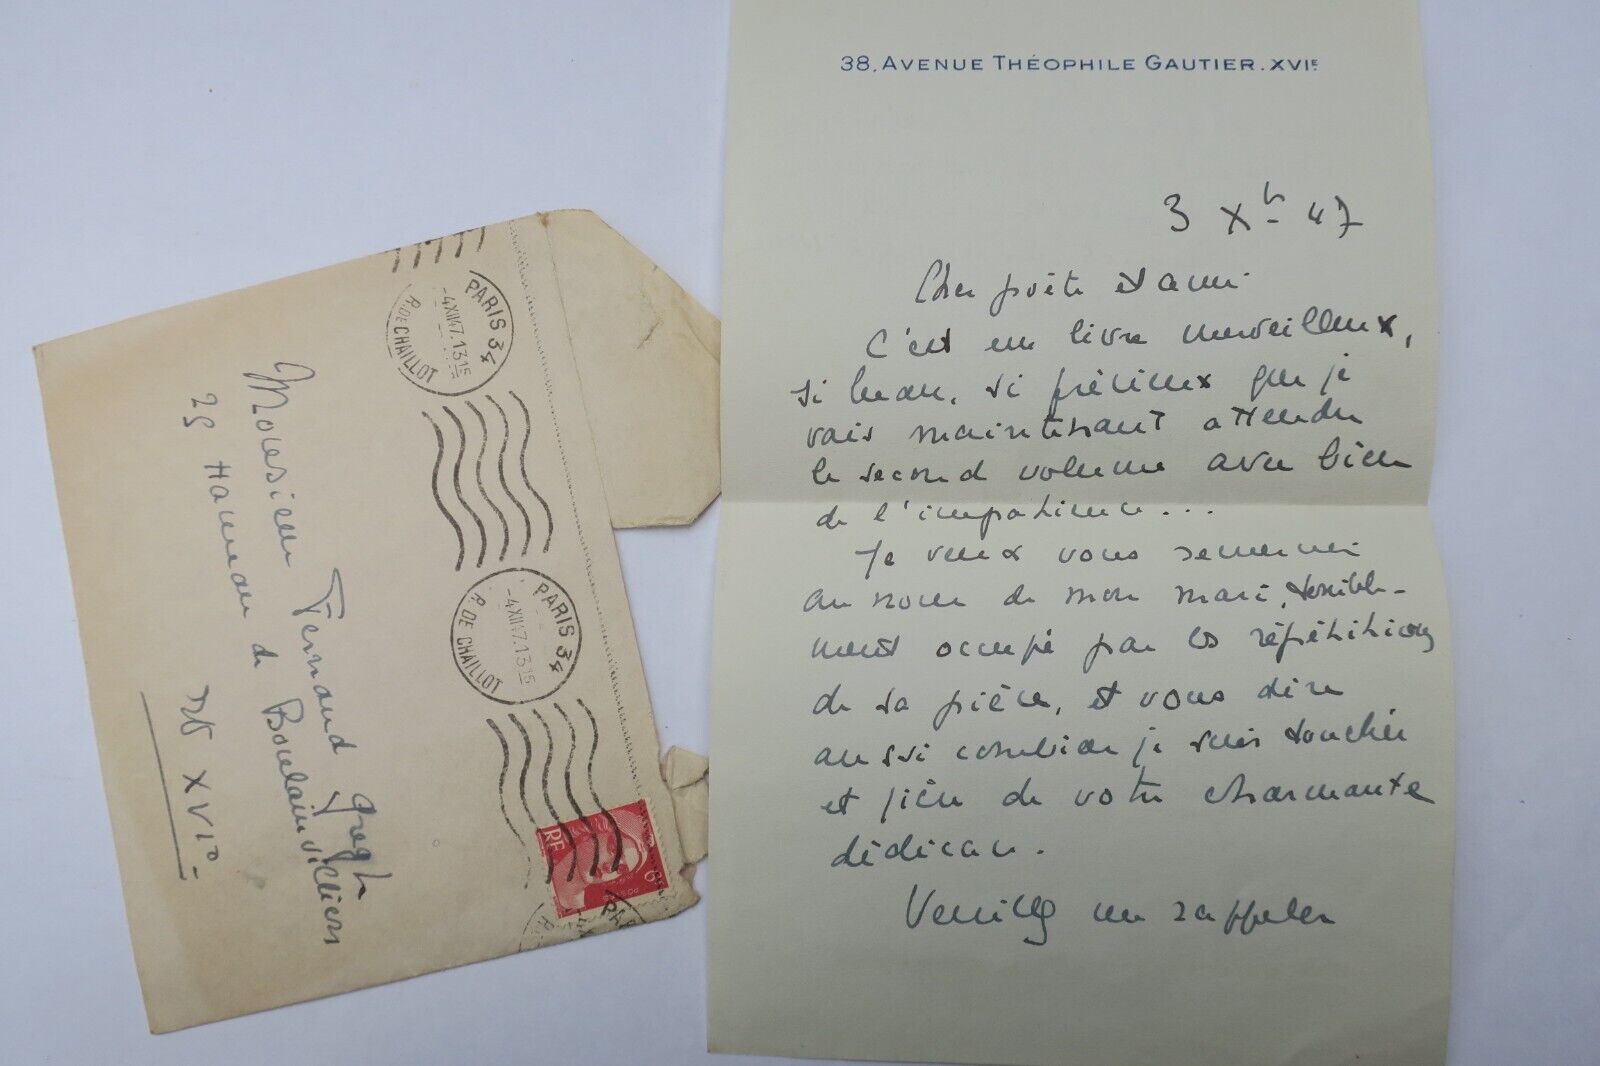 38, AVENUE THÉOPHILE GAUTIER. XVIE
3 Xbr 47
Cher poète et ami
C'est un livre merveilleux,
si beau, si précieux que je
vais maintenant attendre
le second volume avec bien
de l'impatience...
Je veux vous remercier
au nom de mon mari, terrible-
ment occupé par les répétitions
de sa pièce, et vous dire
aussi combien je suis touchée
et fière de votre charmante
dédicace.
Veuillez me rappeler
Monsieur Fernand Gregh
25 Hameau de Boulainvilliers
XVIe
PARIS 34
-4XII47.1315
R. DE CHAILLOT
PARIS 34
-4XII47.1315
R. DE CHAILLOT
RF
6F